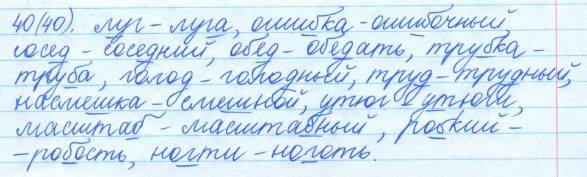 40(40). луг – луга, ошибка – ошибочный,
сосед – соседний, обед – обедать, трубка –
труба, голод – голодный, труд – трудный,
насмешка – смешной, утюг – утюги,
масштаб – масштабный, робкий –
– робость, ногти – ноготь.